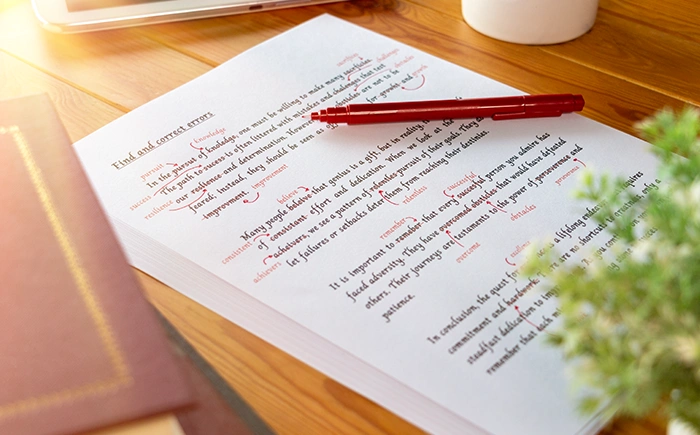 Find and correct errors
sacrifices
challenges
pursuit
knowledge
In the pursut of knowledge, one must be willing to make many sacrifices.
success
The path to success is often littered with mistakes and challenges that test
resilience
our resilience and determination. However, obstacles are not to be
feared; instead, they should be seen as for growths and
growth
improvement
improvement.
believe
Many people believe that genius is a gift but in reality, it
consistent
of consistant effort and dedication. When we look at the
achievers
achaivers, we see a pattern of relenless pursuit of their goals. They
relentless
let failures or setbacks deter them from reaching their destination.
remember
successful
It is important to remamber that every succesful person you admire has
faced adversity. They have overcomed obsticles that would have defeated
overcome
obstacles
perseverance
others. Their journeys are testaments to the power of perseverence and
patience.
In conclusion, the quest for a lifelong
commitment and hardwork. There are no shortcuts to
steadfast dedication to
remember that each